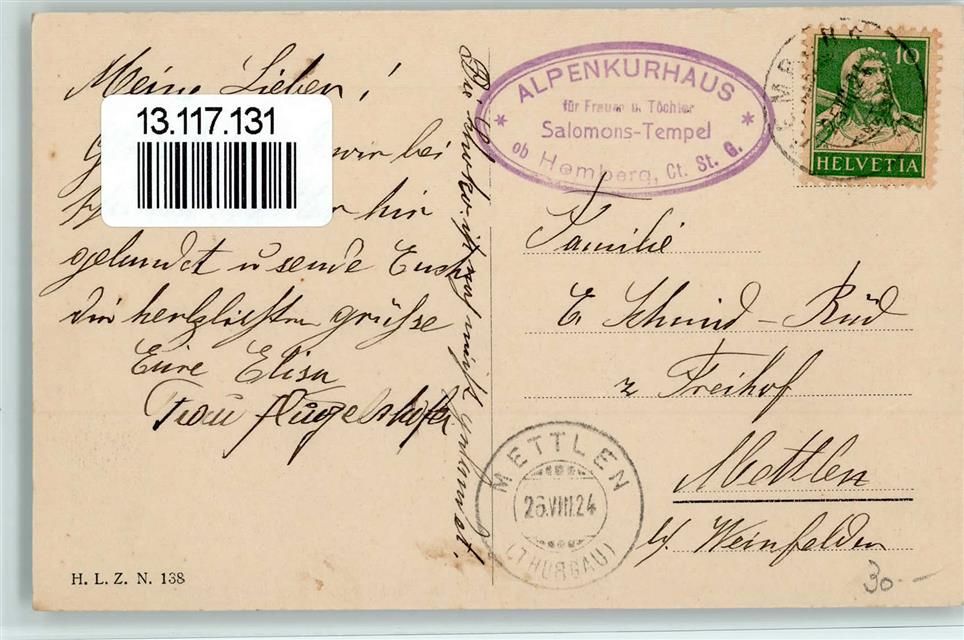 Meine Lieben!
13.117.131
wir bei
hin
gelandet u sende Euch
die herzlichsten grüsse
Eure Elisa
Frau Flügelshofer
Die ist noch nicht
H. L. Z. N. 138
ALPENKURHAUS
für Frauen u. Töchter
Salomons-Tempel
ob Hemberg, Ct. St. G.
10
HELVETIA
Familie
E Schmid-Rüd
z Freihof
Mettlen
b/ Weinfelden
METTLEN
26.VIII.24
(THURGAU)
30.-